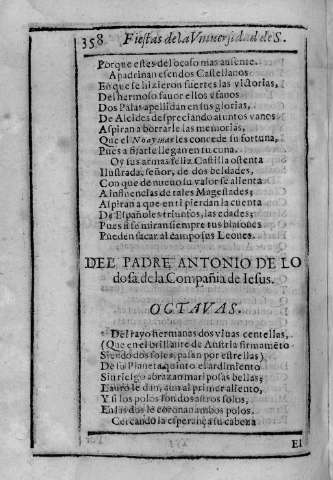 358 Fiestas de la Vniuersidad de S.
Porque estes del ocaso mas ausente.
Apadrinan esendos Castellanos
En que se hizieron fuertes las victorias,
Del hermoso fauor ellos vfanos
Dos Palas apellidan en sus glorias,
De Alcides despreciando asuntos vanos
Aspiran a borrarle las memorias,
Que el No ay mas les concede su fortuna,
Pues a fixarle llegan en su cuna.
Oy sus armas feliz Castilla ostenta
Ilustrada, señor, de dos beldades,
Con que de nueuo su valor se alienta
A influencias de tales Magestades;
Aspiran a que en ti pierdan la cuenta
De Españoles triunfos, las edades;
Pues si se miran siempre tus blasones
Pueden sacar al campo sus Leones.
DEL PADRE ANTONIO DE LO
dosa de la Compañia de Iesus.
OCTAVAS.
Del rayo hermanas dos viuas centellas,
(Que en el brillante de Austria firmamẽto
Siendo dos soles, pasan por estrellas)
De su Planeta quinto el ardimiento
Sin riesgo abrazan mariposas bellas;
Lauro le dan, aun al primer aliento,
Y si los polos son dos astros solos,
En las dos le coronan ambos polos.
Cercando la esperança su cabeza
El